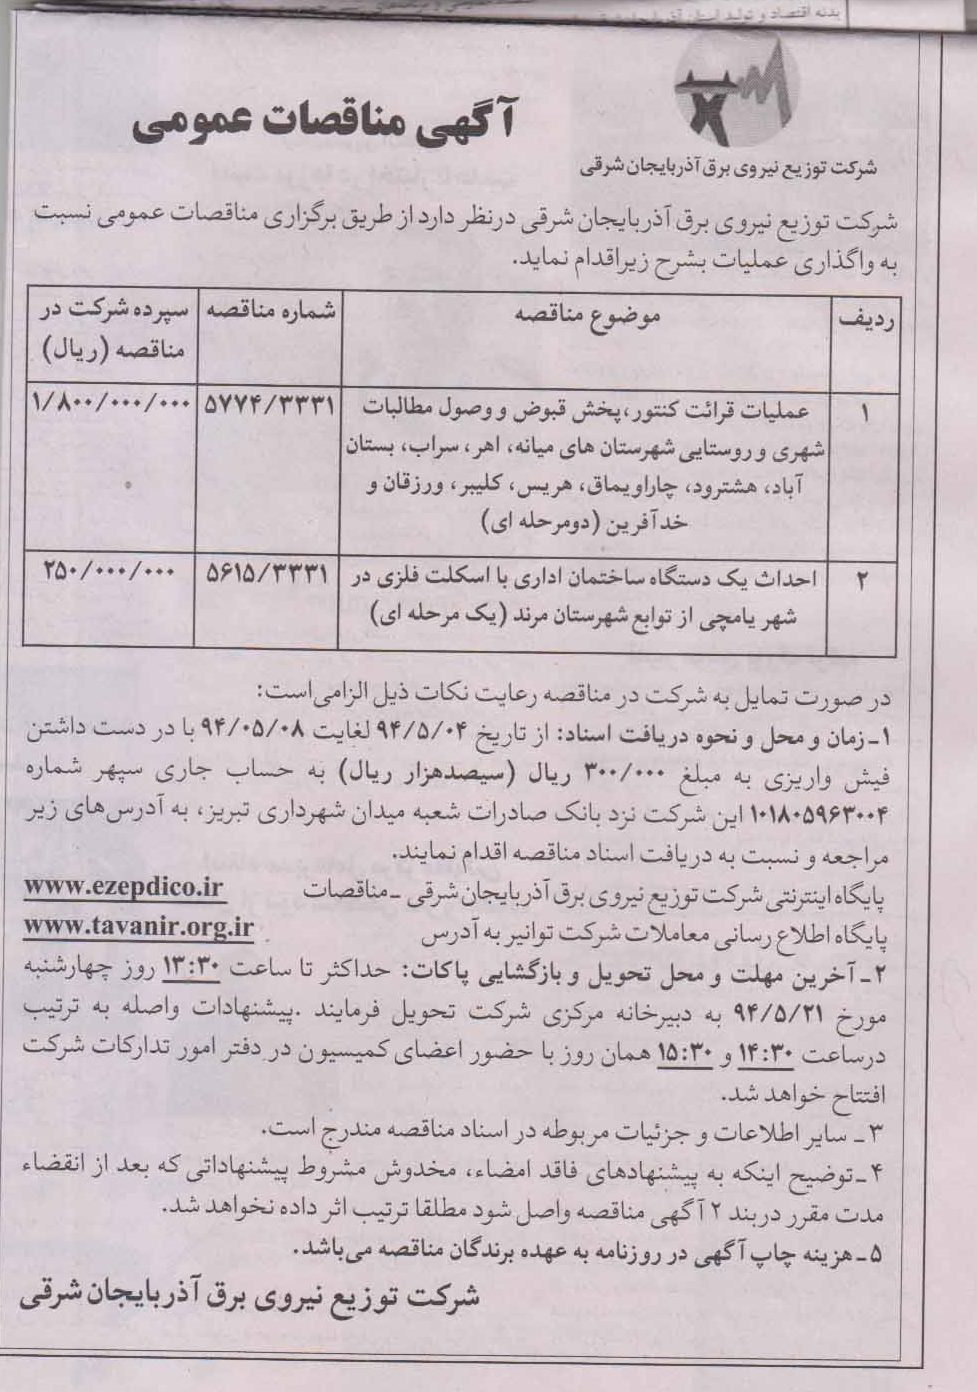 بدنه اقتصاد و تولید استان آذربایجان
آگهی مناقصات عمومی
شرکت توزیع نیروی برق آذربایجان شرقی
شرکت توزیع نیروی برق آذربایجان شرقی درنظر دارد از طریق برگزاری مناقصات عمومی نسبت
به واگذاری عملیات بشرح زیراقدام نماید.
ردیف موضوع مناقصه شماره مناقصه سپرده شرکت در
مناقصه (ریال)
۱ عملیات قرائت کنتور،پخش قبوض و وصول مطالبات ۵۷۷۴/۳۳۳۱ ۱/۸۰۰/۰۰۰/۰۰۰
شهری و روستایی شهرستان های میانه، اهر، سراب، بستان
آباد، هشترود، چاراویماق، هریس، کلیبر، ورزقان و
خدآفرین (دومرحله ای)
۲ احداث یک دستگاه ساختمان اداری با اسکلت فلزی در ۵۶۱۵/۳۳۳۱ ۲۵۰/۰۰۰/۰۰۰
شهر یامچی از توابع شهرستان مرند (یک مرحله ای)
در صورت تمایل به شرکت در مناقصه رعایت نکات ذیل الزامی‌است:
۱ـ زمان و محل و نحوه دریافت اسناد: از تاریخ ۹۴/۵/۰۴ لغایت ۹۴/۰۵/۰۸ با در دست داشتن
فیش واریزی به مبلغ ۳۰۰/۰۰۰ ریال (سیصدهزار ریال) به حساب جاری سپهر شماره
۱۰۱۸۰۵۹۶۳۰۰۴ این شرکت نزد بانک صادرات شعبه میدان شهرداری تبریز، به آدرس‌های زیر
مراجعه و نسبت به دریافت اسناد مناقصه اقدام نمایند.
پایگاه اینترنتی شرکت توزیع نیروی برق آذربایجان شرقی ـ مناقصات www.ezepdico.ir
پایگاه اطلاع رسانی معاملات شرکت توانیر به آدرس www.tavanir.org.ir
۲ـ آخرین مهلت و محل تحویل و بازگشایی پاکات: حداکثر تا ساعت ۱۳:۳۰ روز چهارشنبه
مورخ ۹۴/۵/۲۱ به دبیرخانه مرکزی شرکت تحویل فرمایند .پیشنهادات واصله به ترتیب
درساعت ۱۴:۳۰ و ۱۵:۳۰ همان روز با حضور اعضای کمیسیون در دفتر امور تدارکات شرکت
افتتاح خواهد شد.
۳ـ سایر اطلاعات و جزئیات مربوطه در اسناد مناقصه مندرج است.
۴ـ توضیح اینکه به پیشنهادهای فاقد امضاء، مخدوش مشروط پیشنهاداتی که بعد از انقضاء
مدت مقرر دربند ۲ آگهی مناقصه واصل شود مطلقا ترتیب اثر داده نخواهد شد.
۵ـ هزینه چاپ آگهی در روزنامه به عهده برندگان مناقصه می‌باشد.
شرکت توزیع نیروی برق آذربایجان شرقی